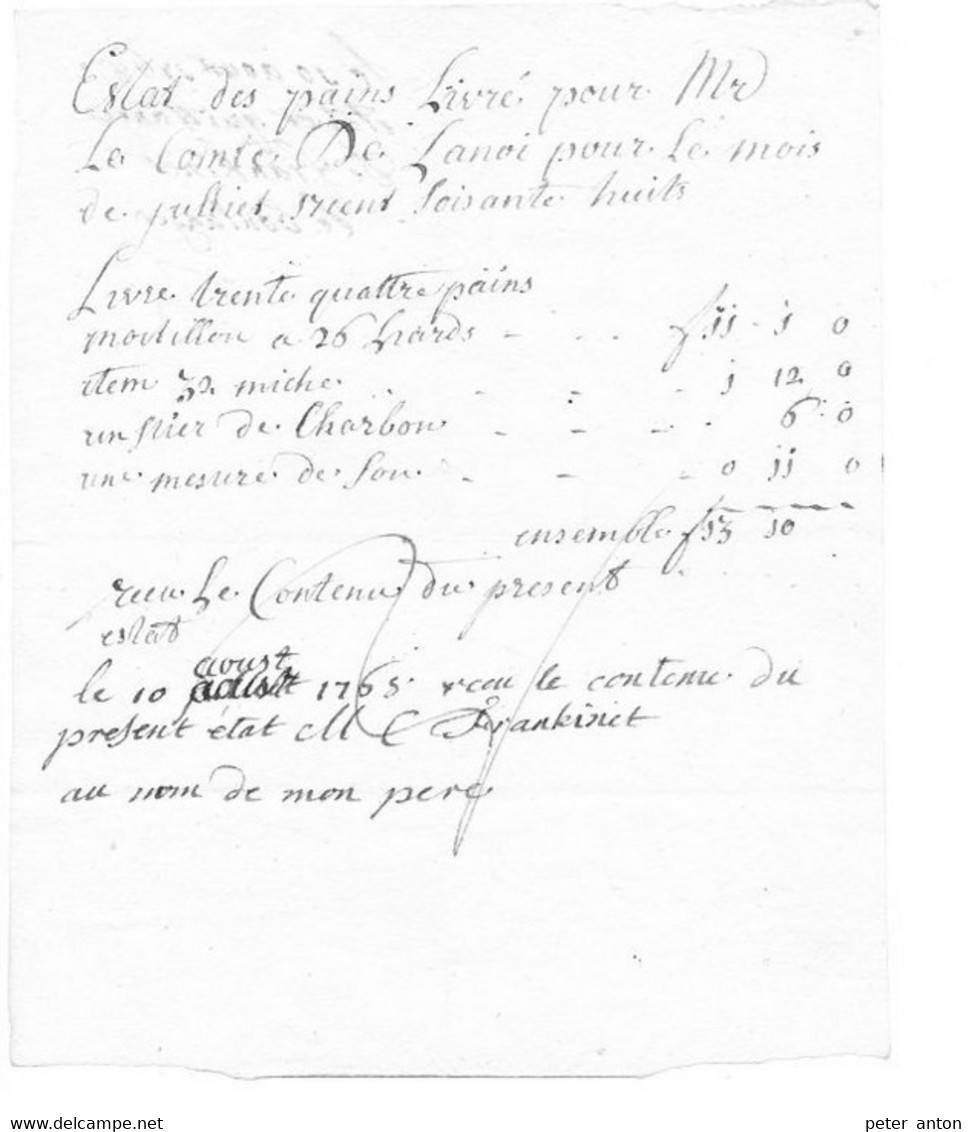 Estat des pains Livré pour Mr
Le Comte De Lanoi pour Le mois
de julliet 17cent soisante huits
Livre trente quattre pains
a 26 liards - - - f 11 - 1 0
item 32 miche - - - 1 12 0
un stier de Charbon - - - - 6 0
une mesure de son - - - 0 11 0
ensemble f 13 10
receu Le Contenu du present
estat
aoust
le 10 1768 receu le contenu du
present état M C Frankinet
au nom de mon pere
www.delcampe.net
peter anton